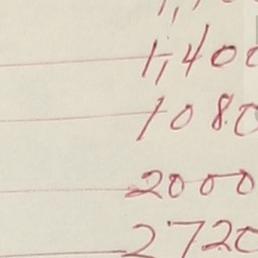 1,400
1080
2000
2720